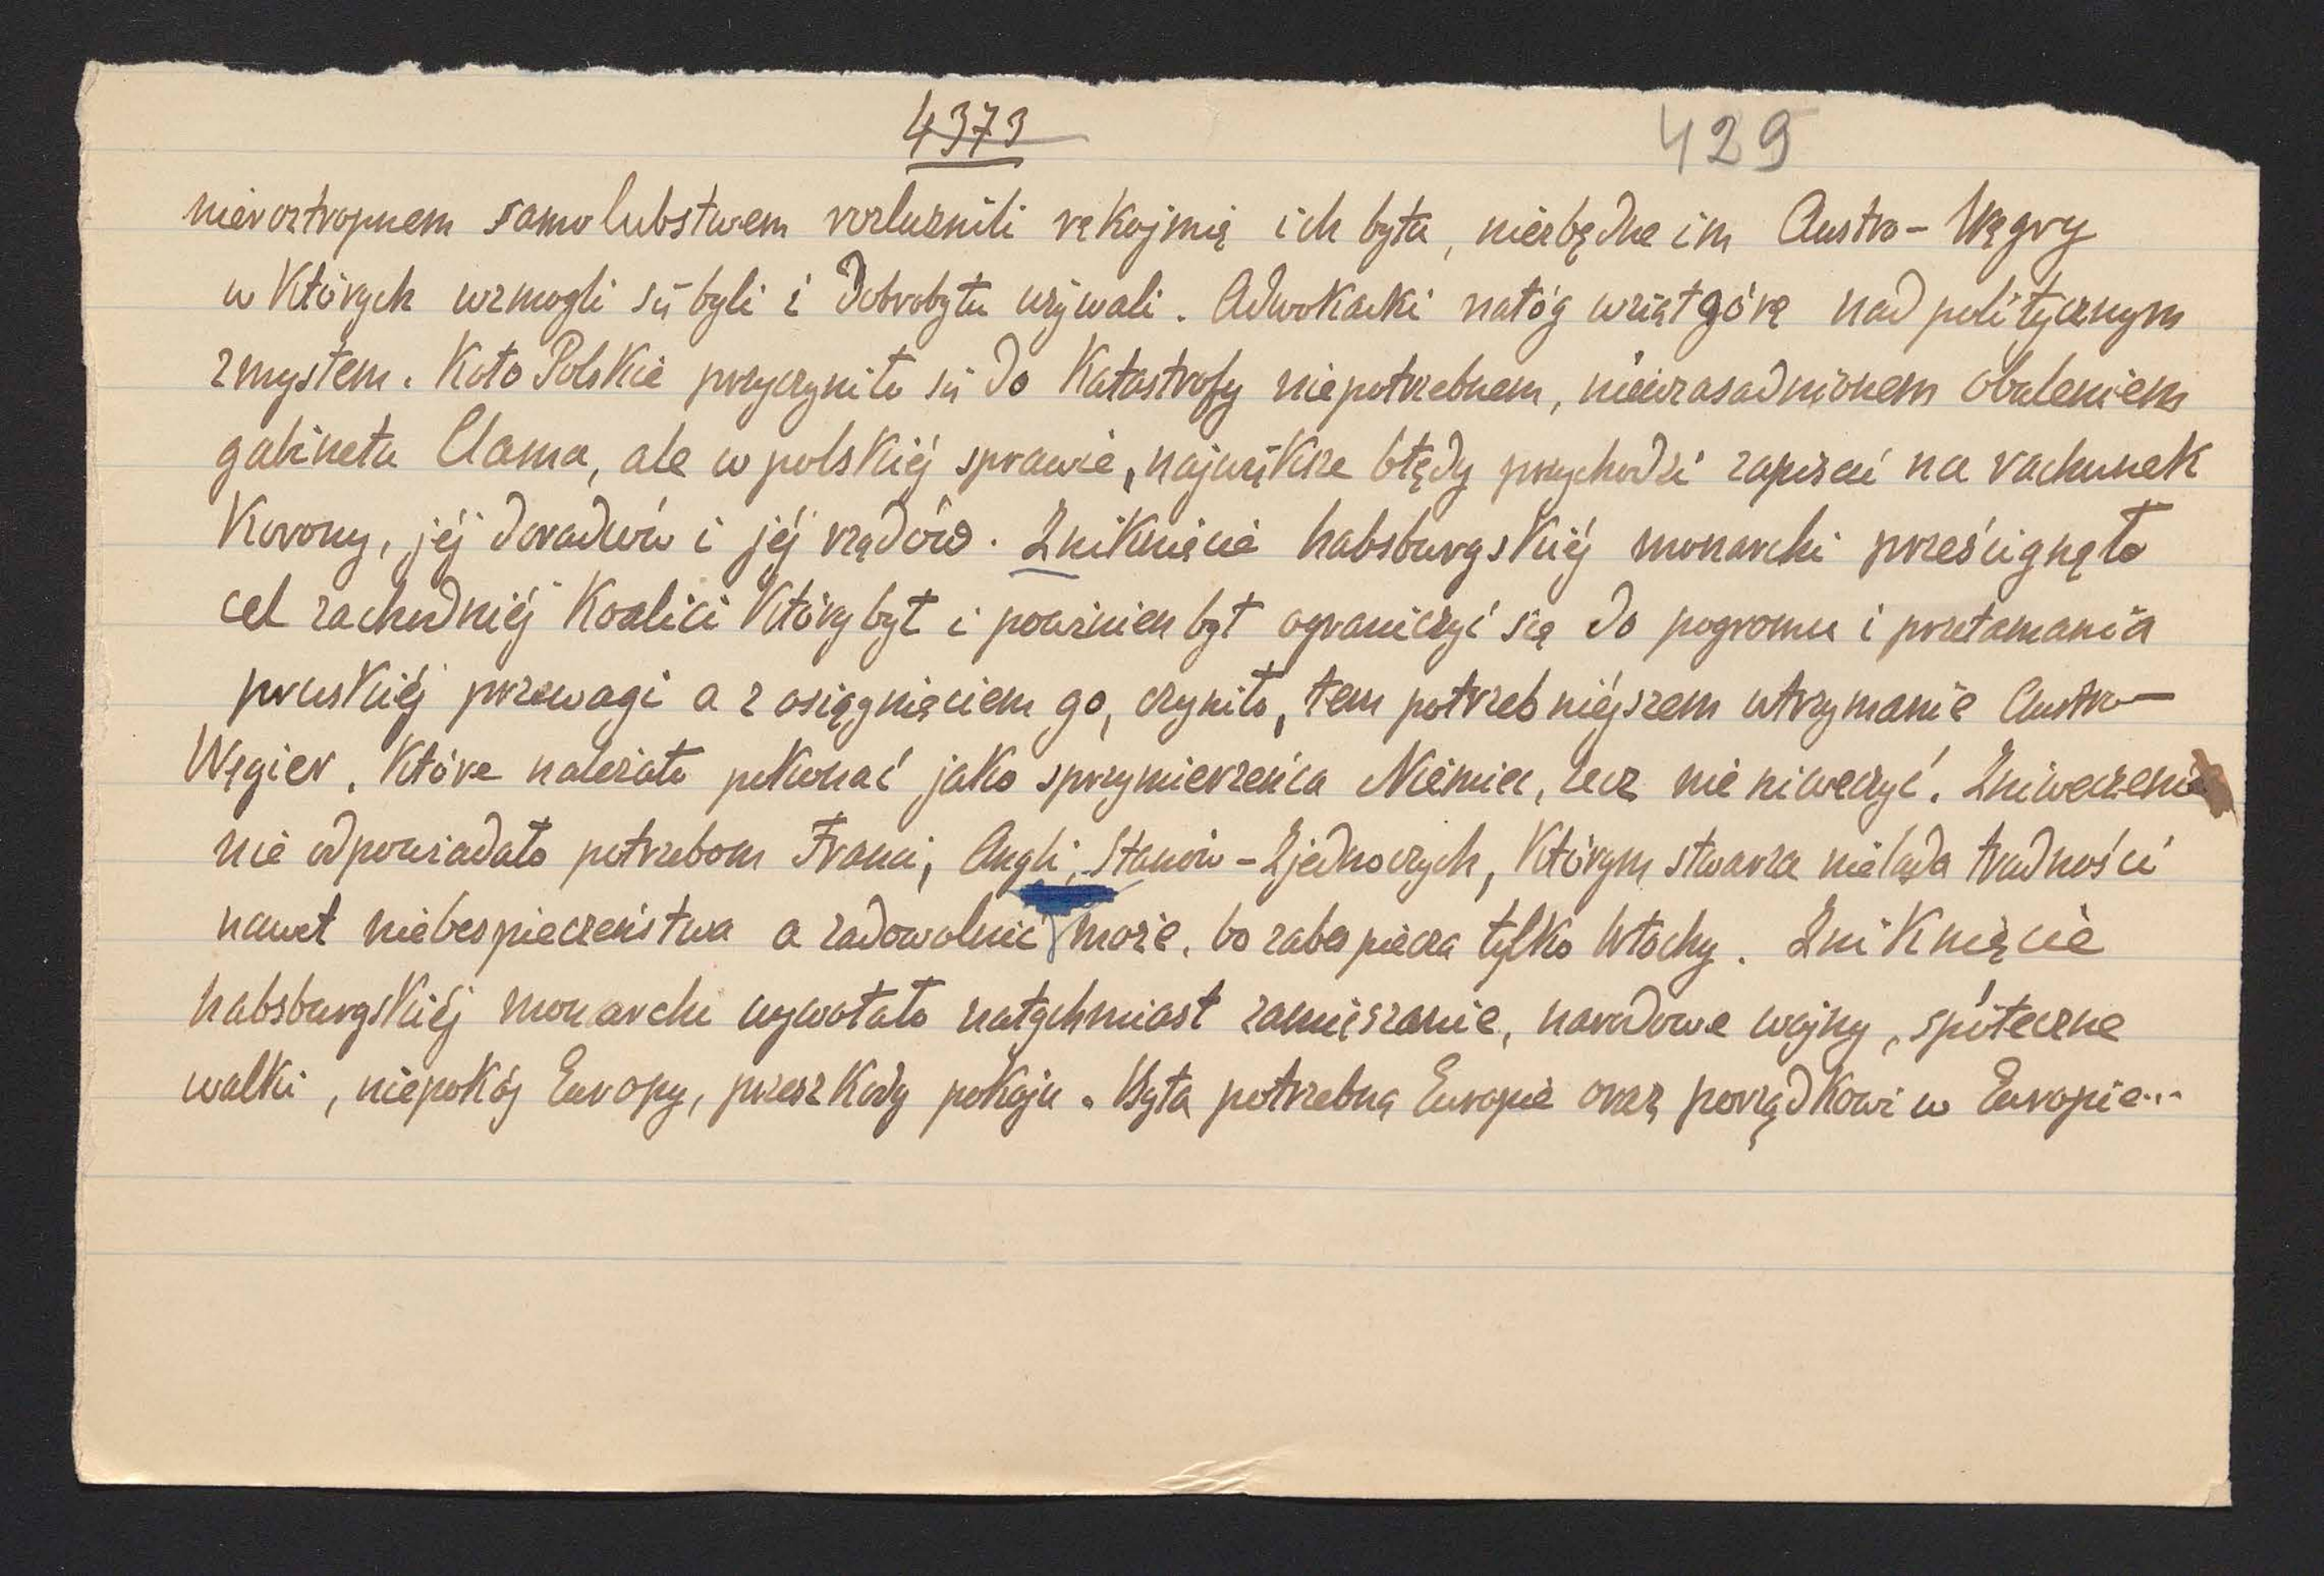 4373 429
nieroztropnem samolubstwem rozluznili rękojmię ich bytu, niezbędne im Austro-Węgry
w których wzmogli się byli i dobrobytu używali. Adwokacki nałóg wziął górę nad politycznym
zmysłem. Koło Polskie przyczyniło się do Katastrofy niepotrzebnem, nieuzasadnionem obaleniem
gabinetu Clama, ale w polskiéj sprawie, największe błędy przychodzi zapisać na rachunek
Korony, jéj doradców i jéj rządów. Zniknięcie habsburgskiéj monarchi prześcignęło
cel zachodniéj Koalici który był i powinien był ograniczyć się do pogromu i przełamania
pruskiéj przewagi a z osiągnięciem go, czyniło, tem potrzebniéjszem utrzymanie Austro-
Węgier. Które należało pokonać jako sprzymierzeńca Niemiec, lecz nie niweczyć. Zniweczenie
nie odpowiadało potrzebom Franci, Angli, Stanów-Zjednoczych, Którym stwarza nielada trudności
nawet niebezpieczeństwa a zadowolnić może, bo zabezpiecza tylko Włochy. Zniknięcie
habsburgskiéj monarchi wywołało natychmiast zamięszanie, narodowe wojny, spółeczne
walki, niepokój Europy, przeszkody pokoju. Była potrzebną Europie oraz porządkowi w Europie...